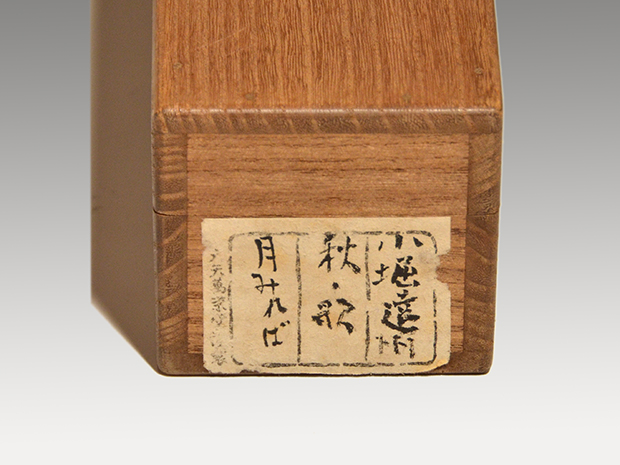 小堀遠州
秋・歌
月みれば